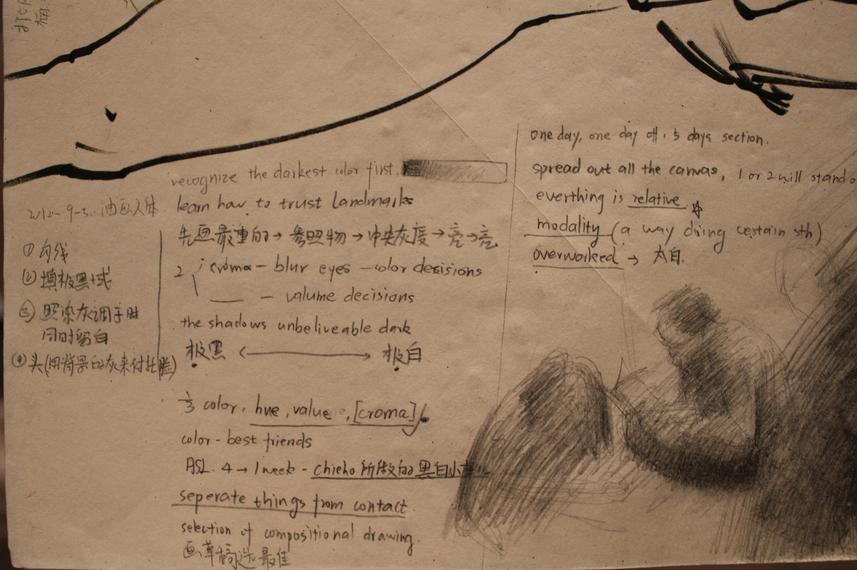 油画人体
① 勾线
② 填极黑域
③ 照涂灰调子时
同时留白
④ 头(用背景的灰来衬
recognize the darkest color first.
learn how to trust Landmarks
先画最重的→参照物→中央灰度→亮→亮
2 croma - blur eyes - color desisions
— valume decisions
the shadows unbeliveable dark
极黑 ⟷ 极白
3 color. hue, value, [croma]
color - best friends
4 → 1 week - 所做的黑白小
seperate things from contact
selection of compositional drawing.
画草稿选最佳
one day, one day off. 3 days section.
spread out all the canvas, 1 or 2 will stand o
everthing is relative
modality (a way ding certain sth)
overworked → 太白.